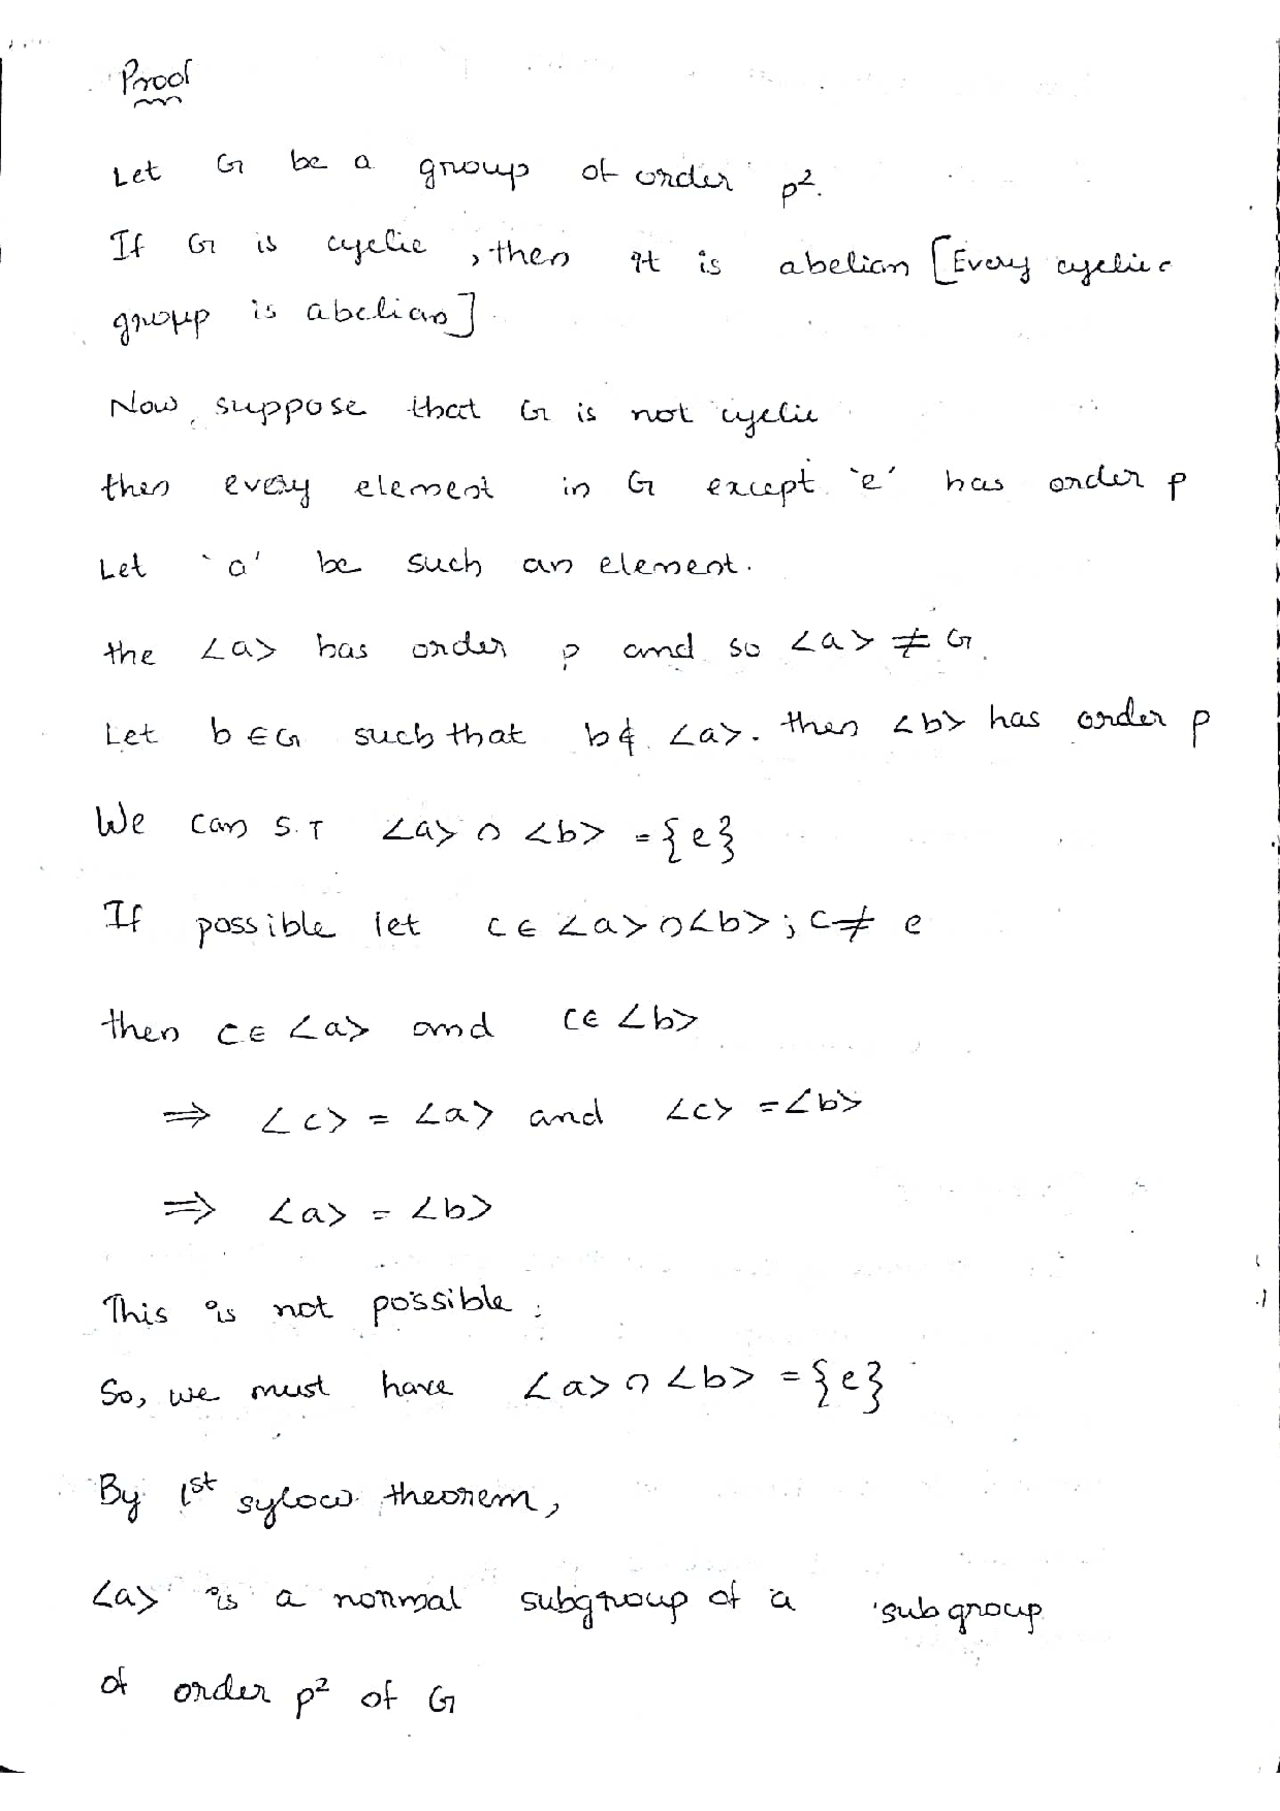 Proof
Let G be a group of order p².
If G is cyclic, then it is abelian [Every cyclic
group is abelian]
Now, suppose that G is not cyclic
then every element in G except 'e' has order p
Let 'a' be such an element.
the <a> has order p and so <a> ≠ G.
Let b ∈ G such that b ∉ <a>. then <b> has order p
We can S.T <a> ∩ <b> = {e}
If possible let c ∈ <a> ∩ <b>; c ≠ e
then c ∈ <a> and c ∈ <b>
⇒ <c> = <a> and <c> = <b>
⇒ <a> = <b>
This is not possible.
So, we must have <a> ∩ <b> = {e}
By 1st sylow theorem,
<a> is a normal subgroup of a subgroup
of order p² of G